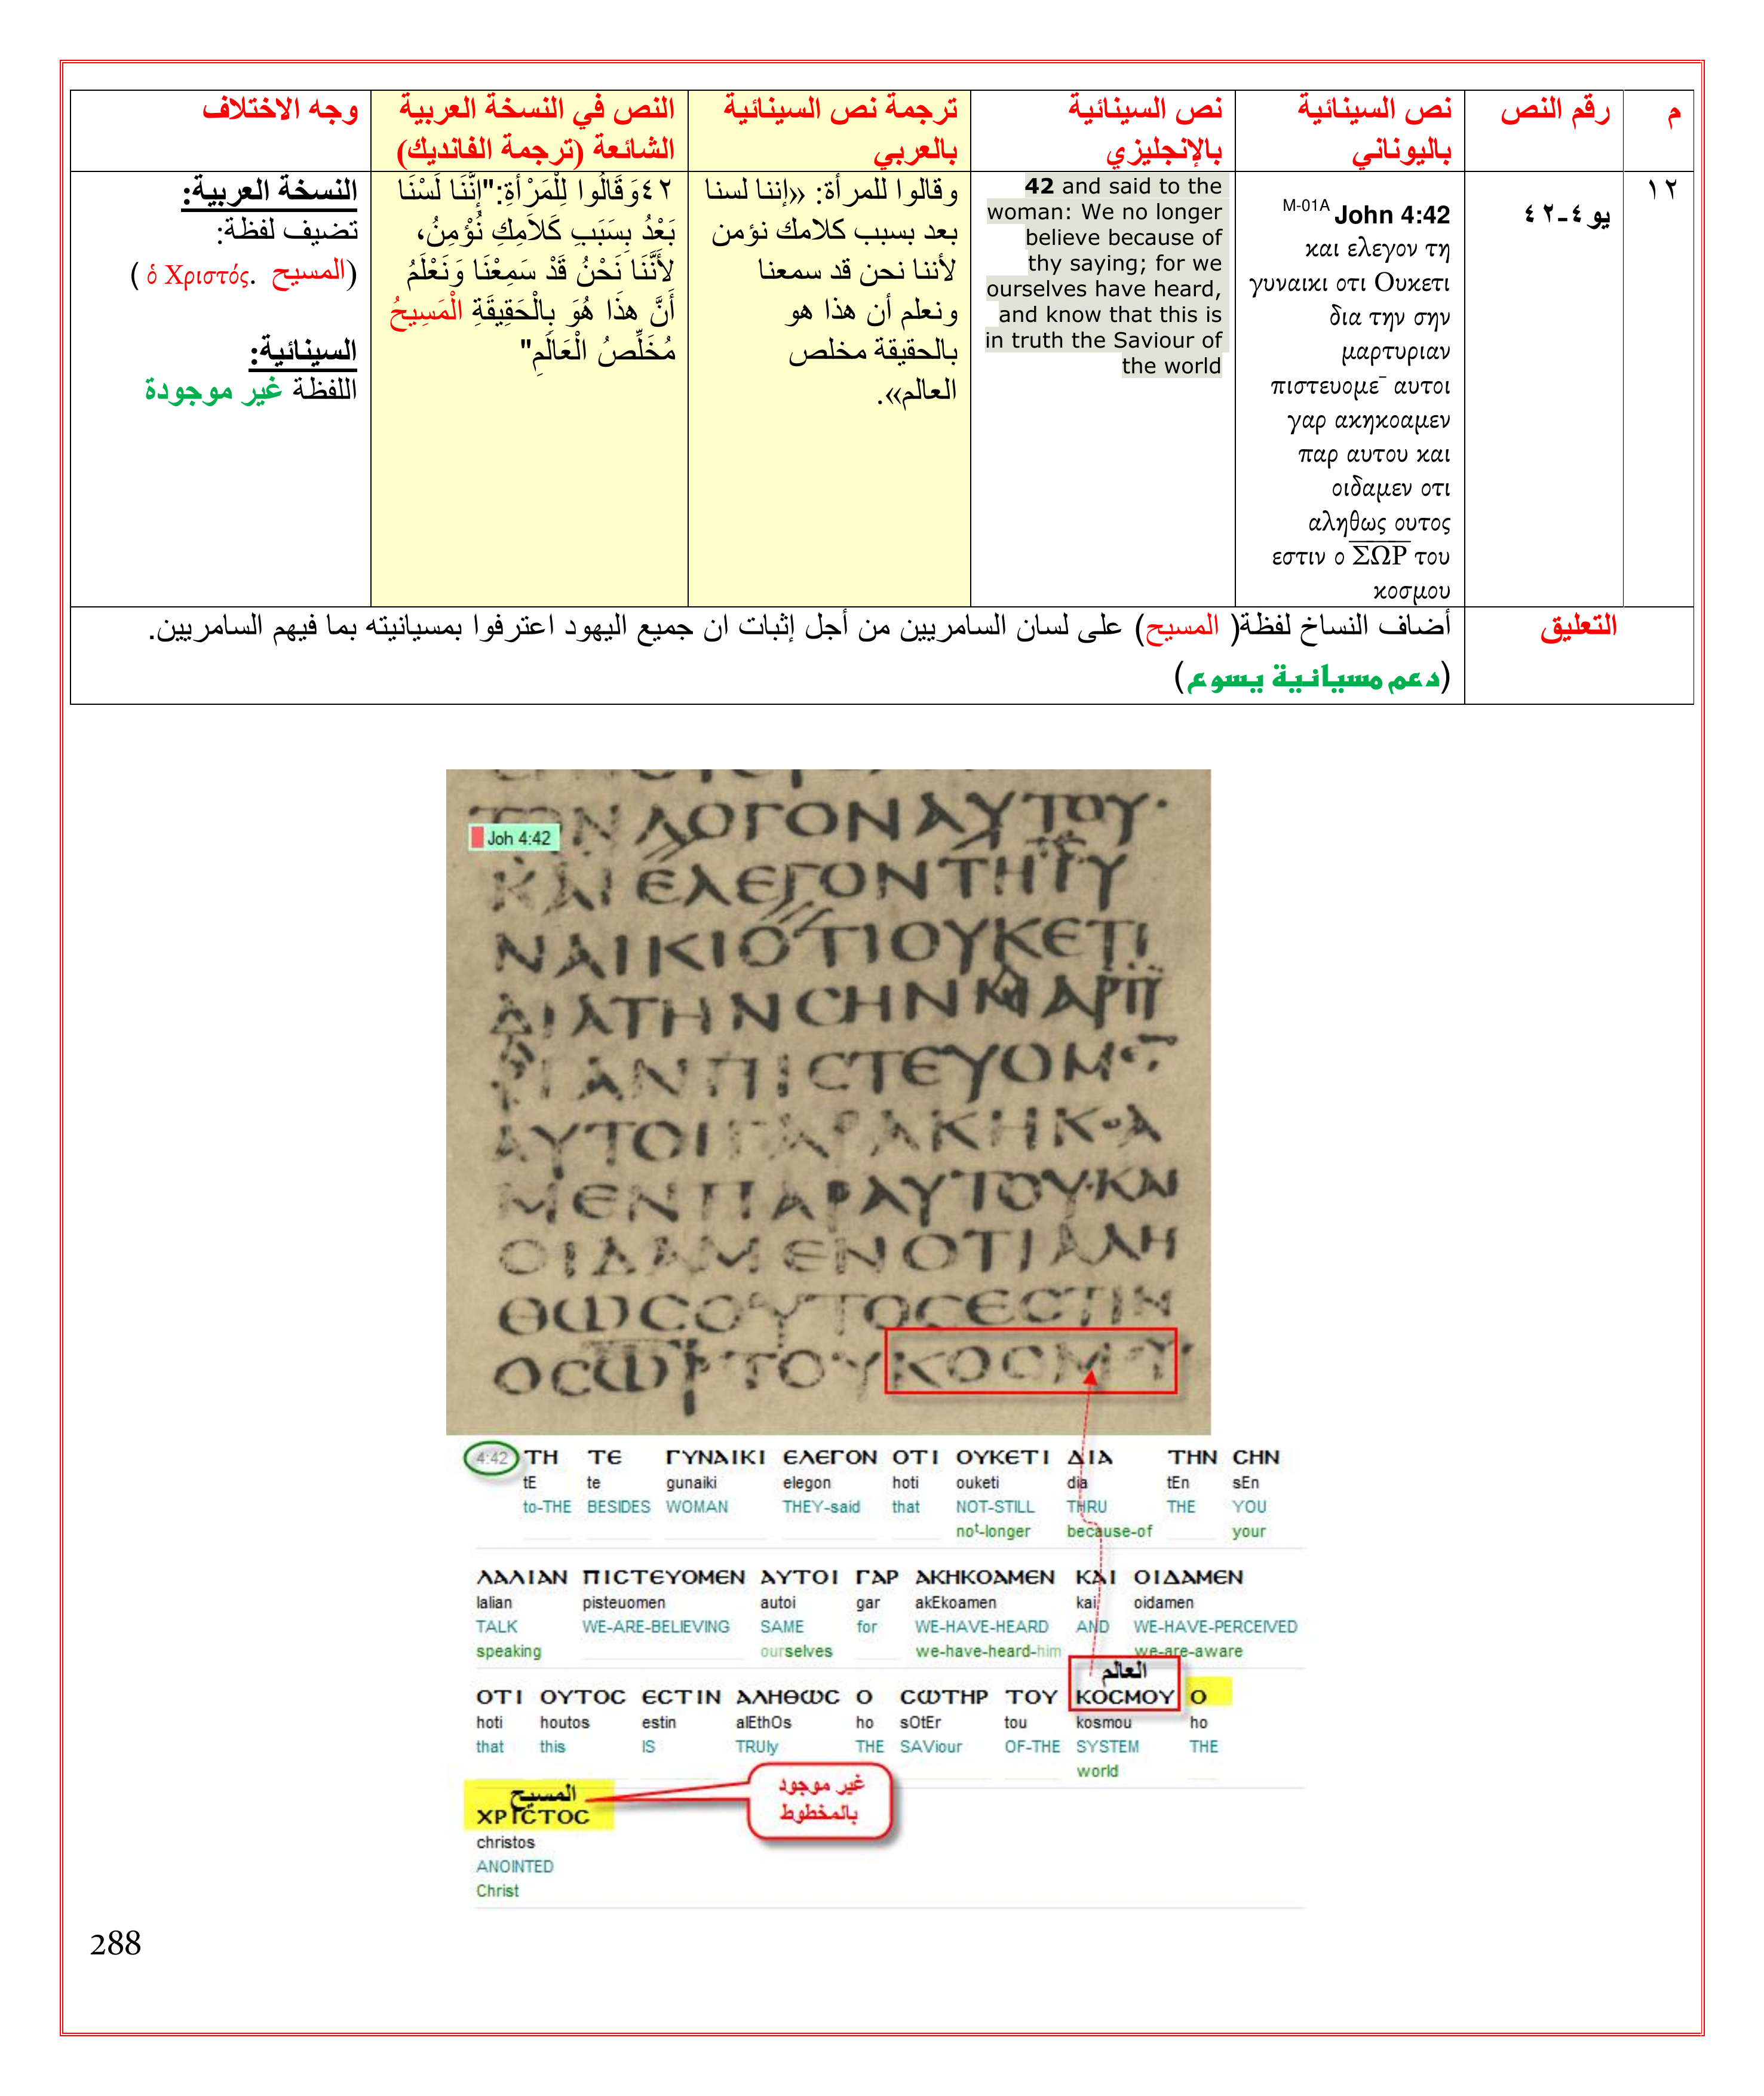 م
رقم النص
نص السينائية
باليوناني
نص السينائية
بالإنجليزي
ترجمة نص السينائية
بالعربي
النص في النسخة العربية
الشائعة (ترجمة الفانديك)
وجه الاختلاف
١٢
يو ٤-٤٢
M-01A John 4:42
και ελεγον τη
γυναικι οτι Ουκετι
δια την σην
μαρτυριαν
πιστευομε¯ αυτοι
γαρ ακηκοαμεν
παρ αυτου και
οιδαμεν οτι
αληθως ουτος
εστιν ο ΣΩΡ του
κοσμου
42 and said to the
woman: We no longer
believe because of
thy saying; for we
ourselves have heard,
and know that this is
in truth the Saviour of
the world
وقالوا للمرأة: «إننا لسنا
بعد بسبب كلامك نؤمن
لأننا نحن قد سمعنا
ونعلم أن هذا هو
بالحقيقة مخلص
العالم».
٤٢وَقَالُوا لِلْمَرْأَةِ:"إِنَّنَا لَسْنَا
بَعْدُ بِسَبَبِ كَلاَمِكِ نُؤْمِنُ،
لأَنَّنَا نَحْنُ قَدْ سَمِعْنَا وَنَعْلَمُ
أَنَّ هذَا هُوَ بِالْحَقِيقَةِ الْمَسِيحُ
مُخَلِّصُ الْعَالَمِ"
النسخة العربية:
تضيف لفظة:
(المسيح .ὁ Χριστός )
السينائية:
اللفظة غير موجودة
التعليق
أضاف النساخ لفظة( المسيح) على لسان السامريين من أجل إثبات ان جميع اليهود اعترفوا بمسيانيته بما فيهم السامريين.
(دعم مسيانية يسوع)
ΤΟΝ ΛΟΓΟΝΑΥΤΟΥ·
Joh 4:42
ΚΑΙ ΕΛΕΓΟΝΤΗΓΥ
ΝΑΙΚΙΟΤΙΟΥΚΕΤΙ
ΔΙΑΤΗΝϹΗΝΜΑΡΤΥ
ΡΙΑΝΠΙϹΤΕΥΟΜΕ¯
ΑΥΤΟΙΓΑΡΑΚΗΚΟΑ
ΜΕΝΠΑΡΑΥΤΟΥΚΑΙ
ΟΙΔΑΜΕΝΟΤΙΑΛΗ
ΘΩϹΟΥΤΟϹΕϹΤΙΝ
ΟϹΩΡΤΟΥΚΟϹΜΟΥ
4:42 ΤΗ ΤΕ ΓΥΝΑΙΚΙ ΕΛΕΓΟΝ ΟΤΙ ΟΥΚΕΤΙ ΔΙΑ ΤΗΝ ϹΗΝ
tE te gunaiki elegon hoti ouketi dia tEn sEn
to-THE BESIDES WOMAN THEY-said that NOT-STILL THRU THE YOU
not-longer because-of your
ΛΑΛΙΑΝ ΠΙϹΤΕΥΟΜΕΝ ΑΥΤΟΙ ΓΑΡ ΑΚΗΚΟΑΜΕΝ ΚΑΙ ΟΙΔΑΜΕΝ
lalian pisteuomen autoi gar akEkoamen kai oidamen
TALK WE-ARE-BELIEVING SAME for WE-HAVE-HEARD AND WE-HAVE-PERCEIVED
speaking ourselves we-have-heard-him we-are-aware
العالم
ΟΤΙ ΟΥΤΟϹ ΕϹΤΙΝ ΑΛΗΘΩϹ Ο ϹΩΤΗΡ ΤΟΥ ΚΟϹΜΟΥ Ο
hoti houtos estin alEthOs ho sOtEr tou kosmou ho
that this IS TRUly THE SAViour OF-THE SYSTEM THE
world
غير موجود
بالمخطوط
المسيح
ΧΡΙϹΤΟϹ
christos
ANOINTED
Christ
288